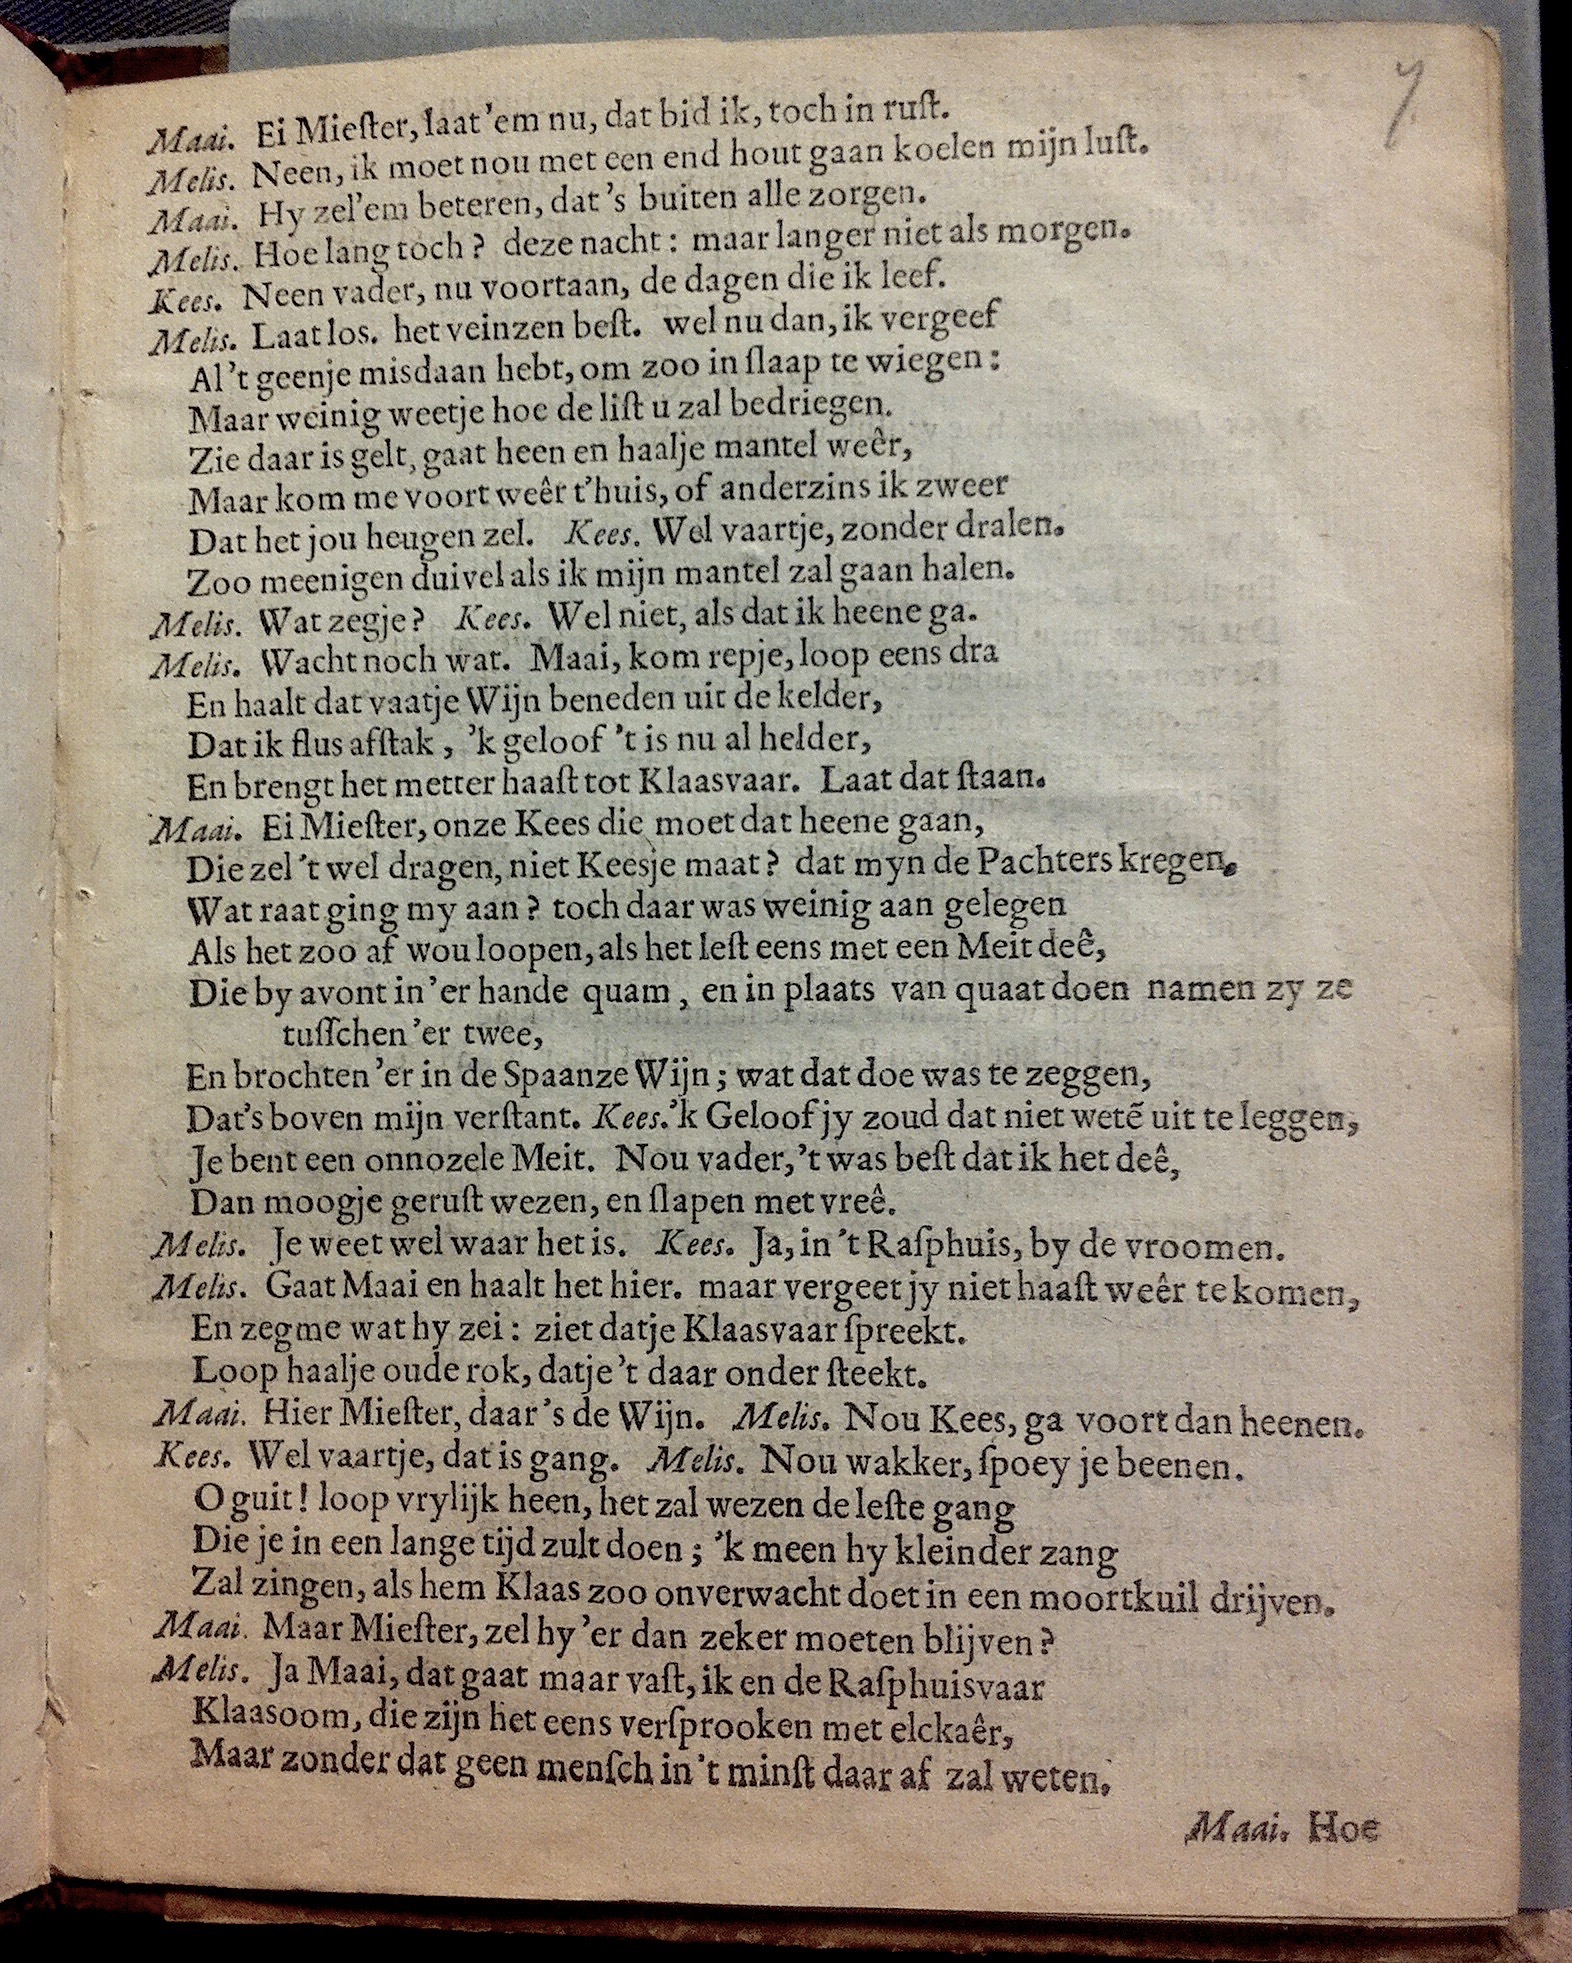 7
Maai. Ei Mieſter, laat 'em nu, dat bid ik, toch in ruſt.
Melis. Neen, ik moet nou met een end hout gaan koelen mijn luſt.
Maai. Hy zel'em beteren, dat 's buiten alle zorgen.
Melis. Hoe lang toch? deze nacht: maar langer niet als morgen.
Kees. Neen vader, nu voortaan, de dagen die ik leef.
Melis. Laat los. het veinzen beſt. wel nu dan, ik vergeef
Al 't geenje misdaan hebt, om zoo in ſlaap te wiegen:
Maar weinig weetje hoe de liſt u zal bedriegen.
Zie daar is gelt, gaat heen en haalje mantel weêr,
Maar kom me voort weêr t'huis, of anderzins ik zweer
Dat het jou heugen zel. Kees. Wel vaartje, zonder dralen.
Zoo meenigen duivel als ik mijn mantel zal gaan halen.
Melis. Wat zegje? Kees. Wel niet, als dat ik heene ga.
Melis. Wacht noch wat. Maai, kom repje, loop eens dra
En haalt dat vaatje Wijn beneden uit de kelder,
Dat ik flus afſtak, 'k geloof 't is nu al helder,
En brengt het metter haaſt tot Klaasvaar. Laat dat ſtaan.
Maai. Ei Mieſter, onze Kees die moet dat heene gaan,
Die zel 't wel dragen, niet Keesje maat? dat myn de Pachters kregen.
Wat raat ging my aan? toch daar was weinig aan gelegen
Als het zoo af wou loopen, als het leſt eens met een Meit deê,
Die by avont in 'er hande quam, en in plaats van quaat doen namen zy ze
tuſſchen 'er twee,
En brochten 'er in de Spaanze Wijn; wat dat doe was te zeggen,
Dat's boven mijn verſtant. Kees. 'k Geloof jy zoud dat niet wetẽ uit te leggen,
Je bent een onnozele Meit. Nou vader, 't was beſt dat ik het deê,
Dan moogje geruſt wezen, en ſlapen met vreê.
Melis. Je weet wel waar het is. Kees. Ja, in 't Raſphuis, by de vroomen.
Melis. Gaat Maai en haalt het hier. maar vergeet jy niet haaſt weêr te komen,
En zeg me wat hy zei: ziet datje Klaasvaar ſpreekt.
Loop haalje oude rok, datje 't daar onder ſteekt.
Maai. Hier Mieſter, daar's de Wijn. Melis. Nou Kees, ga voort dan heenen.
Kees. Wel vaartje, dat is gang. Melis. Nou wakker, ſpoey je beenen.
O guit! loop vrylijk heen, het zal wezen de leſte gang
Die je in een lange tijd zult doen; 'k meen hy kleinder zang
Zal zingen, als hem Klaas zoo onverwacht doet in een moortkuil drijven.
Maai. Maar Mieſter, zel hy 'er dan zeker moeten blijven?
Melis. Ja Maai, dat gaat maar vaſt, ik en de Raſphuisvaar
Klaasoom, die zijn het eens verſprooken met elckaêr,
Maar zonder dat geen menſch in 't minſt daar af zal weten.
Maai. Hoe